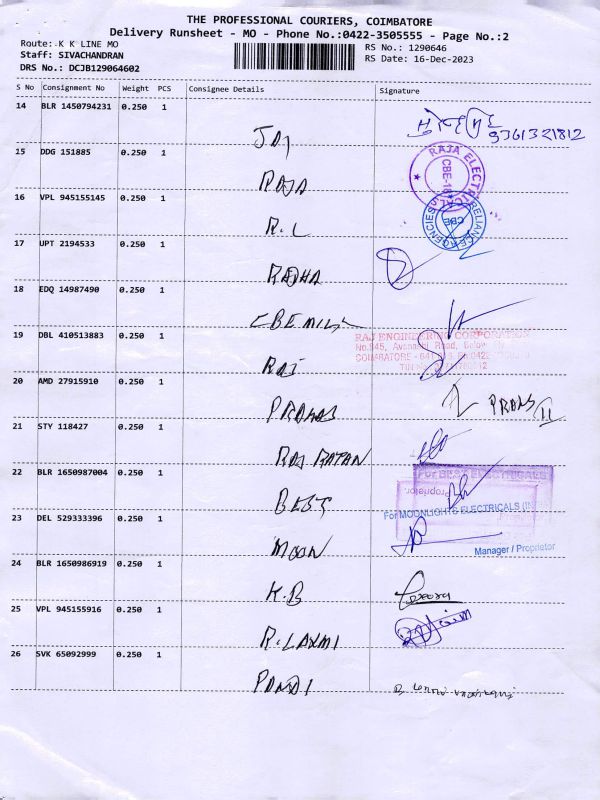 THE PROFESSIONAL COURIERS, COIMBATORE
Delivery Runsheet - MO - Phone No.:0422-3505555 - Page No.:2
Route: K K LINE MO
RS No.: 1290646
Staff: SIVACHANDRAN
RS Date: 16-Dec-2023
DRS No.: DCJB129064602
S No Consignment No Weight PCS Consignee Details Signature
14 BLR 1450794231 0.250 1
9361321812
15 DDG 151885 0.250 1
RAJA
RAJA ELECTRICALS
CBE-18
16 VPL 945155145 0.250 1
R.L
RELIANCE AGENCIES
CBE
17 UPT 2194533 0.250 1
RADHA
18 EDQ 14987490 0.250 1
CBE MILLS
RAJ ENGINEERING CORPORATION
19 DBL 410513883 0.250 1
RAJ
COIMBATORE - 641
20 AMD 27915910 0.250 1
PRAKAS
21 STY 118427 0.250 1
RAJ RATAN
22 BLR 1650987004 0.250 1
BEST
Proprietor
For MOONLIGHTS ELECTRICALS (IN
23 DEL 529333396 0.250 1
MOON
Manager / Proprietor
24 BLR 1650986919 0.250 1
K.B
25 VPL 945155916 0.250 1
R.LAXMI
26 SVK 65092999 0.250 1
PANDI